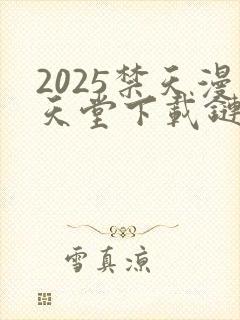 2025禁天漫
天堂下載鏈
雪真涼